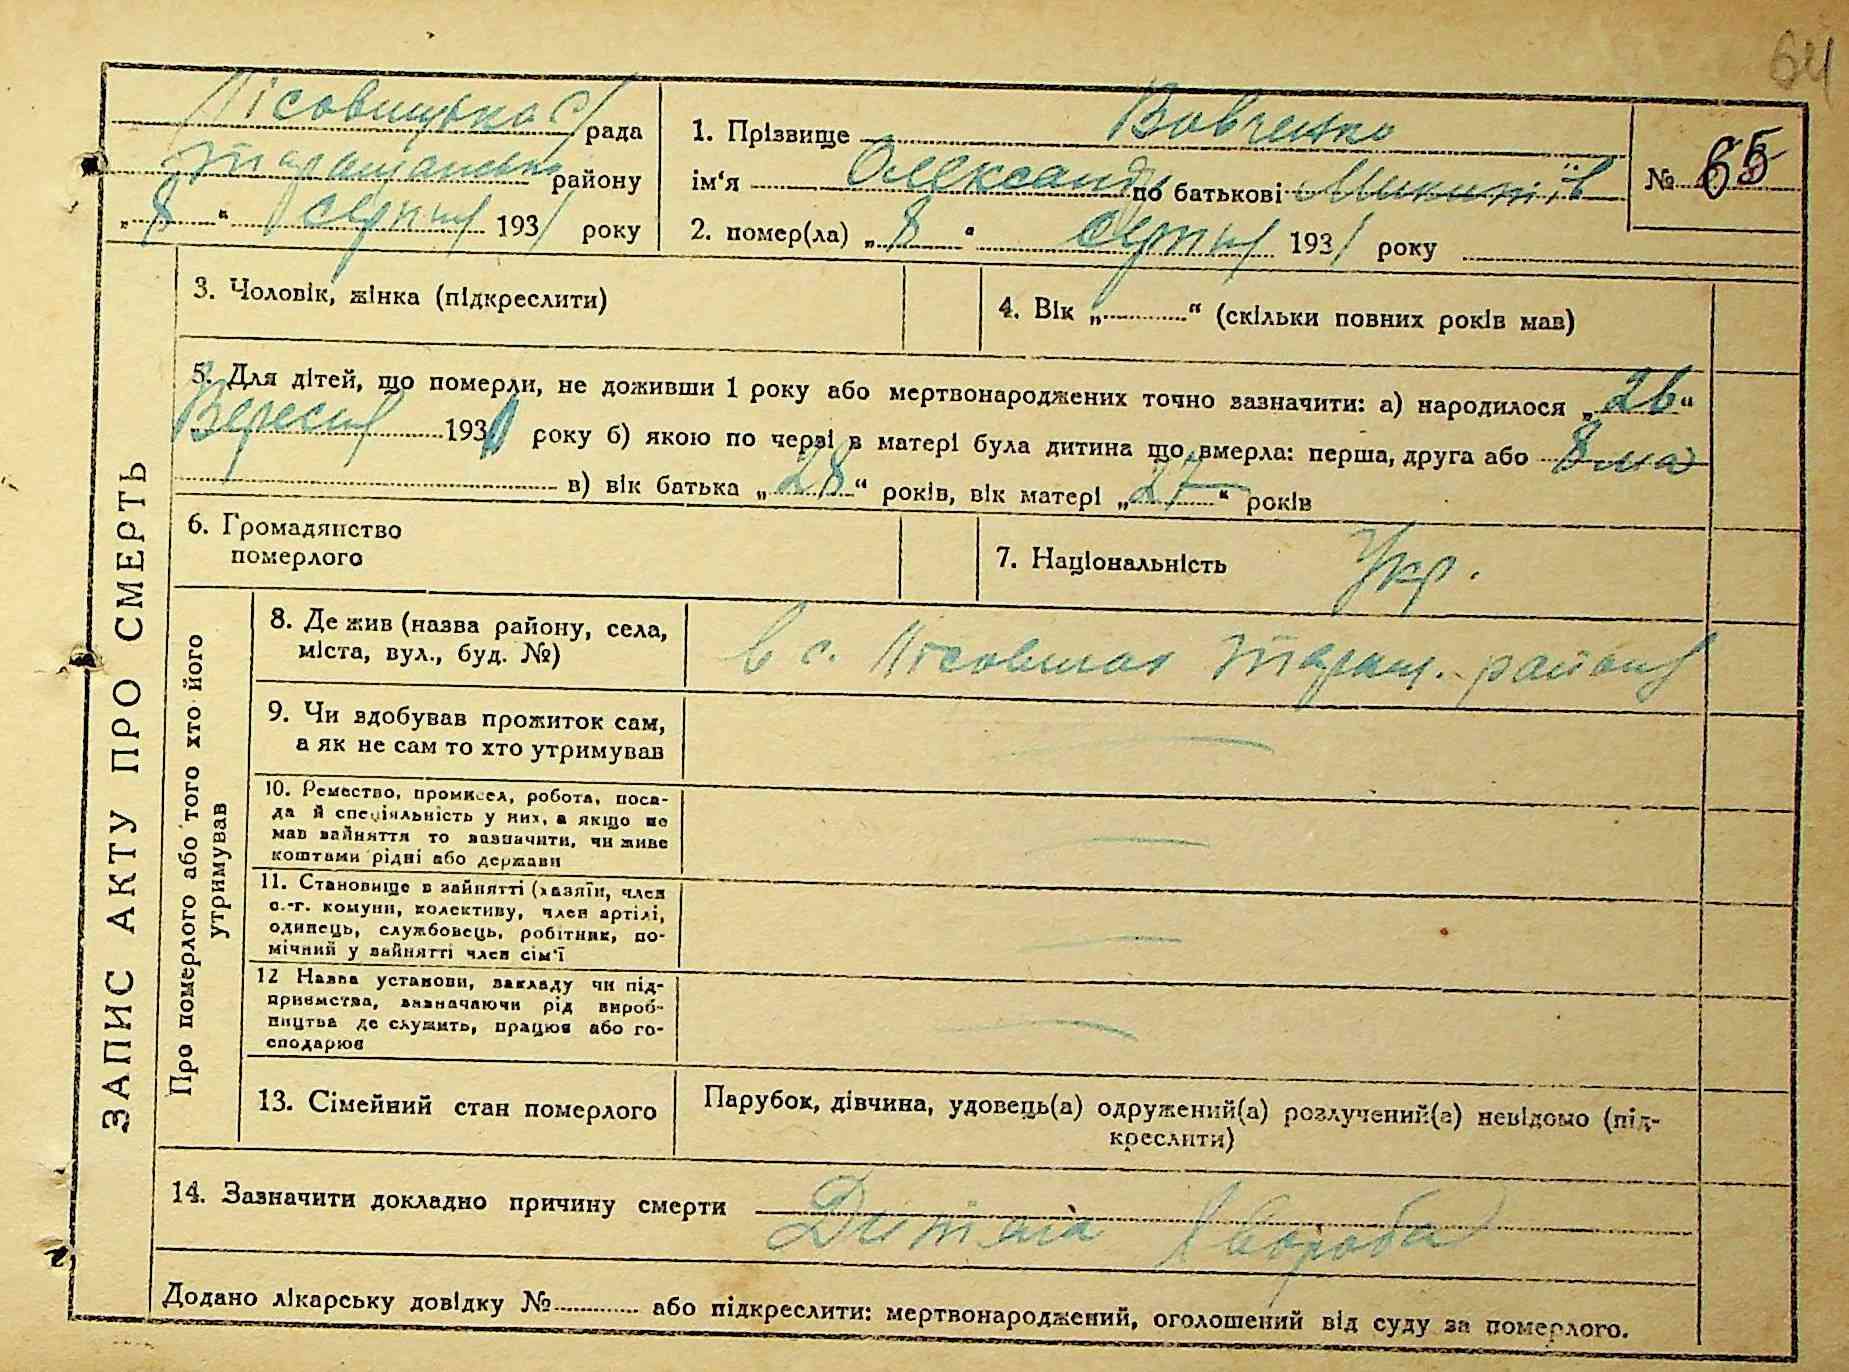 64
Лісовицька с/рада
Таращанськ району
„8“ серпня 1931 року
1. Прізвище Вовченко
ім‘я Олександр по батькові Микитів
2. помер(ла) „8“ серпня 1931 року
№ 65
3. Чоловік, жінка (підкреслити)
4. Вік „ “ (скільки повних років мав)
5. Для дітей, що померли, не доживши 1 року або мертвонароджених точно зазначити: а) народилося „26“
Вересня 1930 року б) якою по черзі в матері була дитина що вмерла: перша, друга або 8 ма
в) вік батька „28“ років, вік матері „27“ років
6. Громадянство
померлого
7. Національність Укр.
ЗАПИС АКТУ ПРО СМЕРТЬ
Про померлого або того хто його
утримував
8. Де жив (назва району, села,
міста, вул., буд. №)
в с. Лісовичах Таращ. району
9. Чи здобував прожиток сам,
а як не сам то хто утримував
10. Ремество, промисел, робота, поса-
да й спеціяльність у них, а якщо не
мав зайняття то зазначити, чи живе
коштами рідні або держави
11. Становище в зайнятті (хазяїн, член
с.-г. комуни, колективу, член артілі,
одинець, службовець, робітник, по-
мічний у зайнятті член сім‘ї
12 Назва установи, закладу чи під-
приємства, зазначаючи рід вироб-
ництва де служить, працює або го-
сподарює
13. Сімейний стан померлого
Парубок, дівчина, удовець(а) одружений(а) розлучений(а) невідомо (під-
креслити)
14. Зазначити докладно причину смерти
Дитяча хвороба
Додано лікарську довідку № або підкреслити: мертвонароджений, оголошений від суду за померлого.